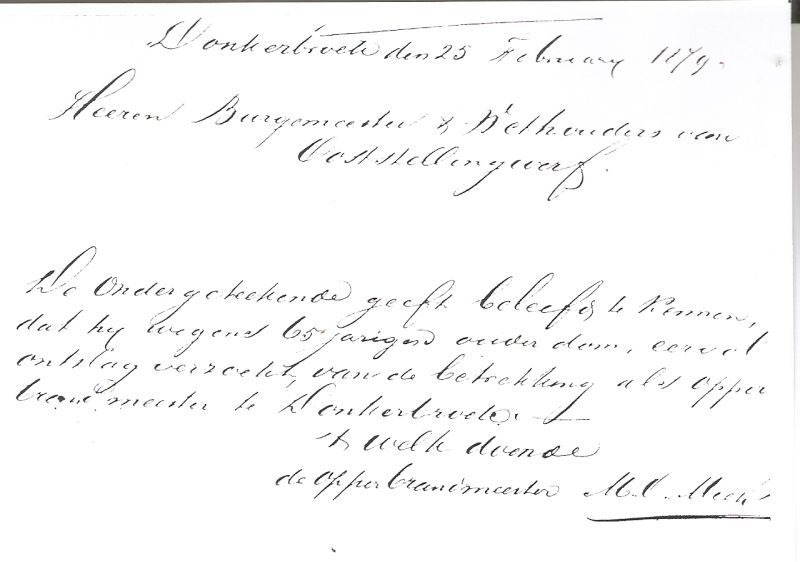 Donkerbroek den 25 February 1879.
Heeren Burgemeester & Wethouders van
Ooststellingwerf.
De Ondergeteekende geeft beleefd te kennen,
dat hy wegens 65 jarigen ouderdom, eervol
ontslag verzoekt, van de betrekking als opper
brandmeester te Donkerbroek.
't welk doende
de opperbrandmeester M.O.